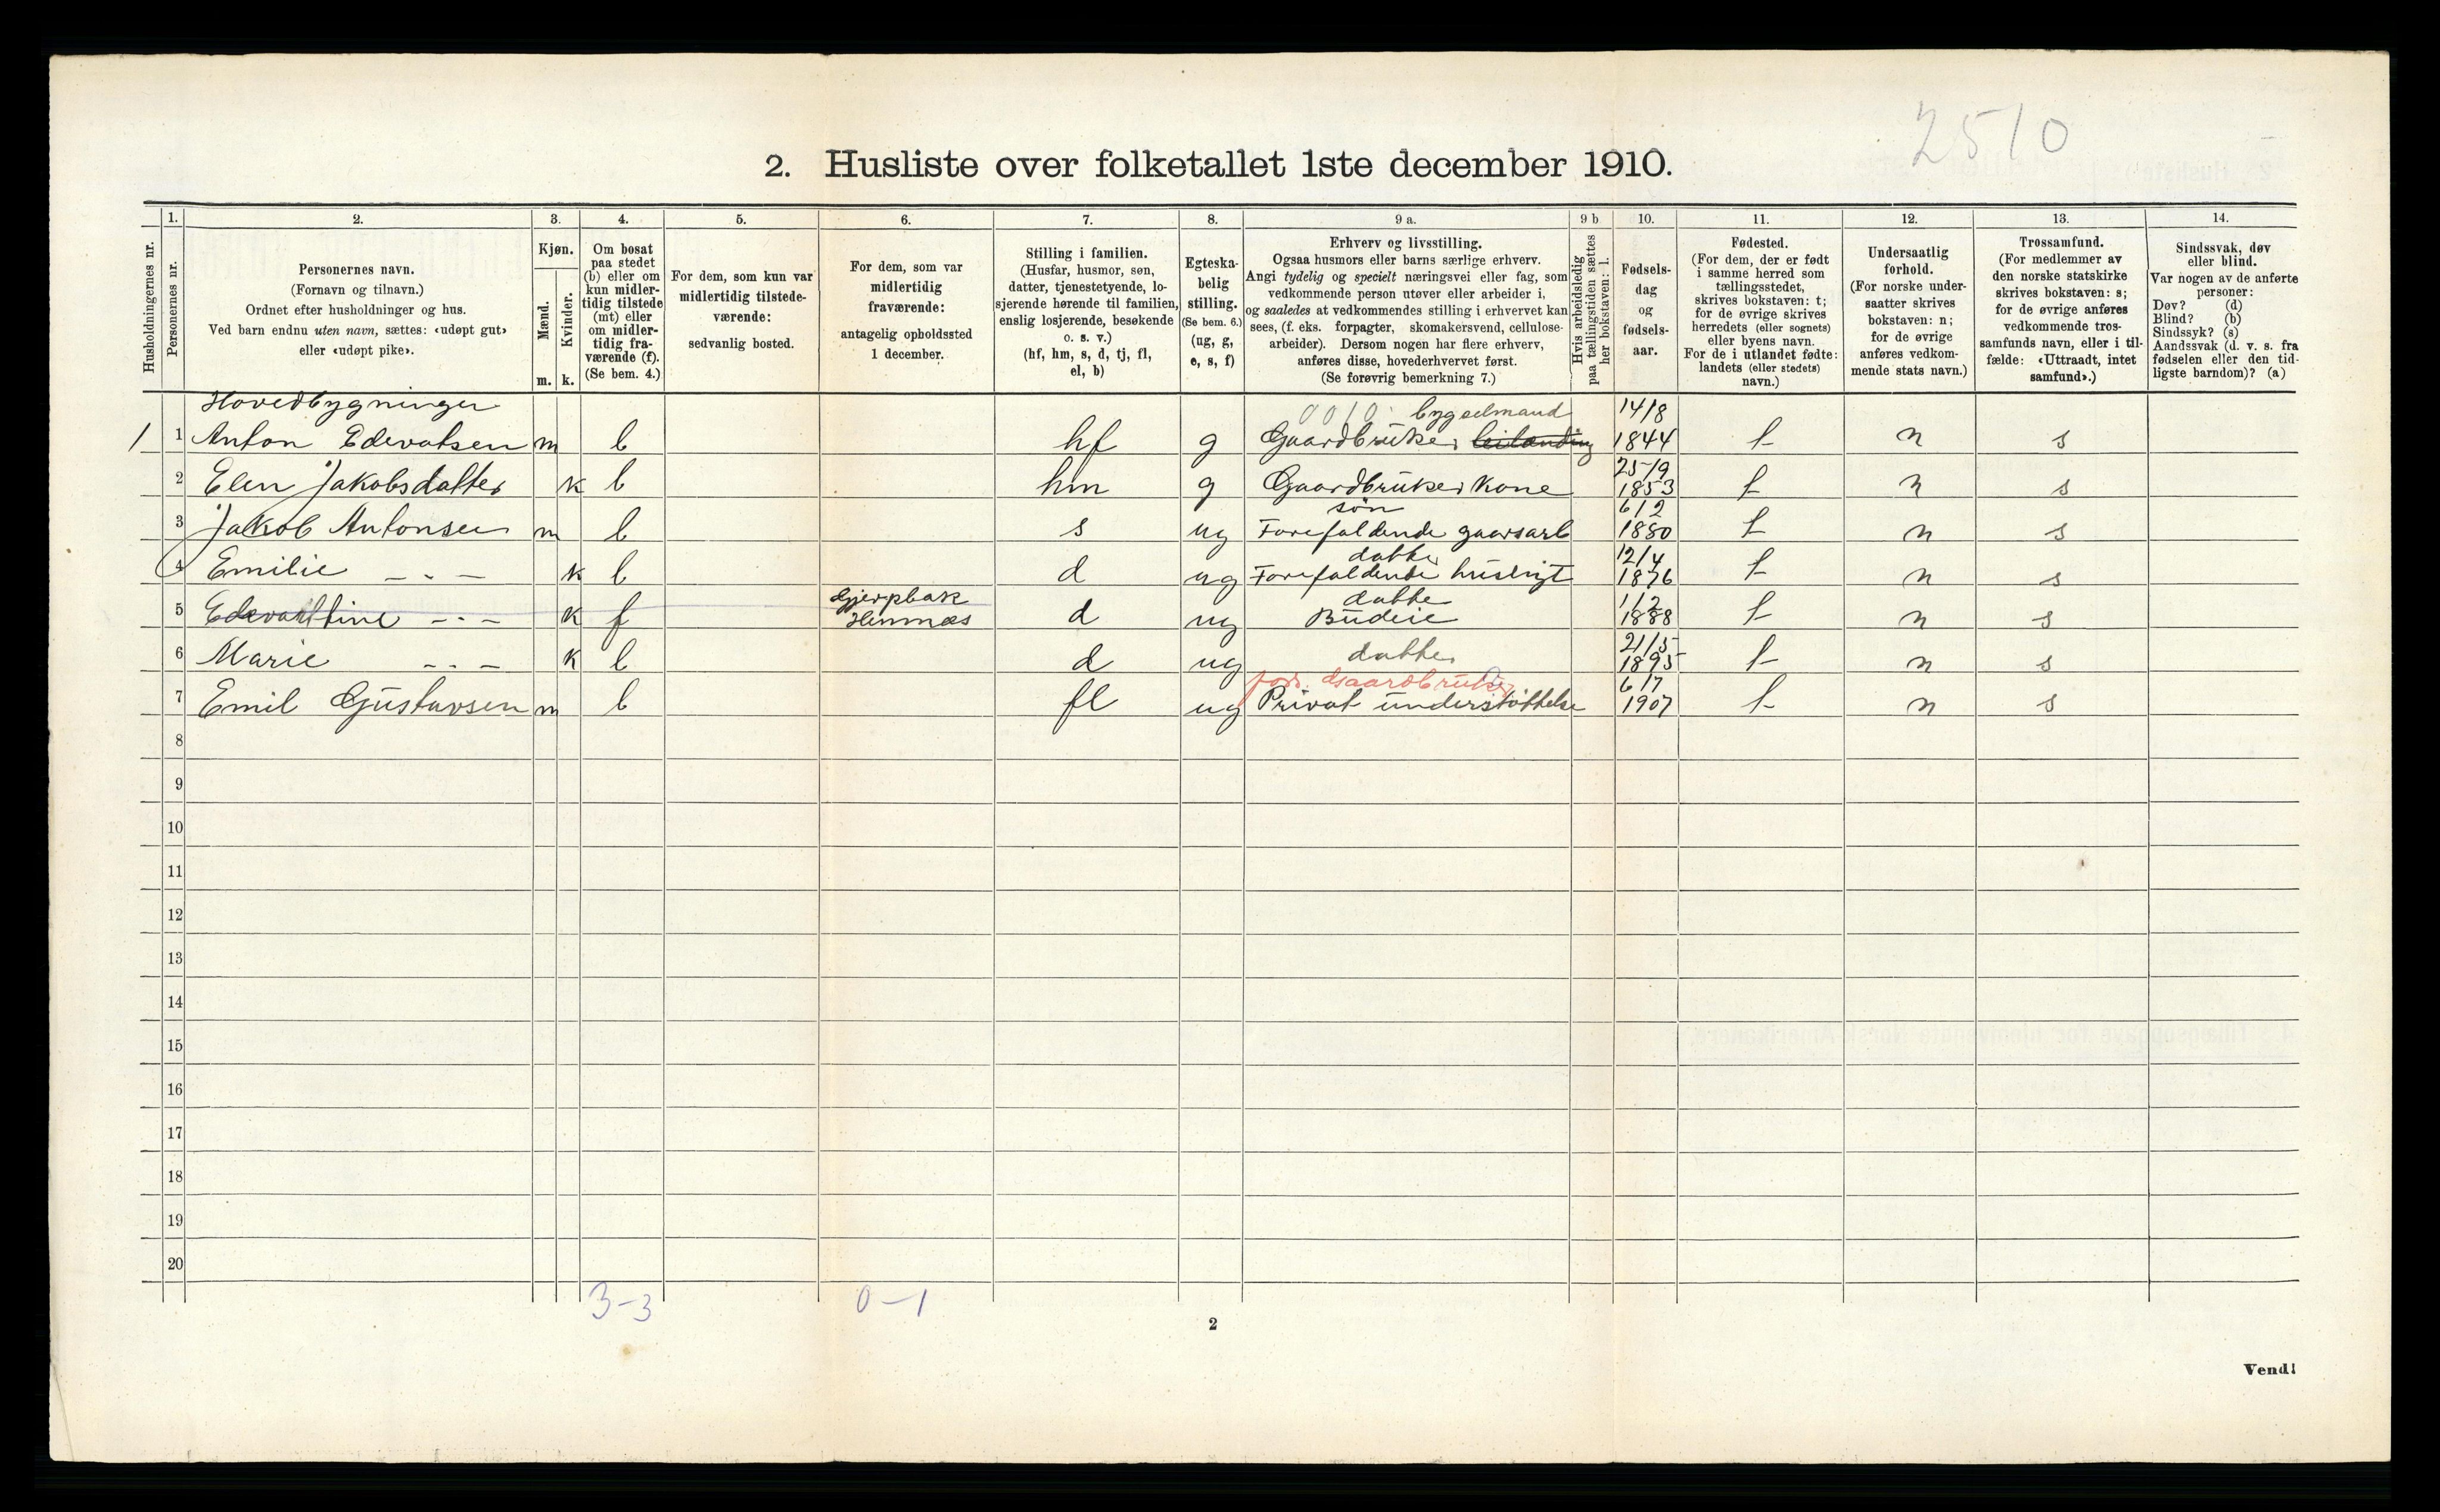 2510
2. Husliste over folketallet 1ste december 1910.
Husholdningernes nr.
1.
Personernes nr.
2.
Personernes navn.
(Fornavn og tilnavn.)
Ordnet efter husholdninger og hus.
Ved barn endnu uten navn, sættes: «udøpt gut»
eller «udøpt pike».
3.
Kjøn.
Mænd.
Kvinder.
m. k.
4.
Om bosat
paa stedet
(b) eller om
kun midler-
tidig tilstede
(mt) eller
om midler-
tidig fra-
værende (f).
(Se bem. 4.)
5.
For dem, som kun var
midlertidig tilstede-
værende:
sedvanlig bosted.
6.
For dem, som var
midlertidig
fraværende:
antagelig opholdssted
1 december.
7.
Stilling i familien.
(Husfar, husmor, søn,
datter, tjenestetyende, lo-
sjerende hørende til familien,
enslig losjerende, besøkende
o. s. v.)
(hf, hm, s, d, tj, fl,
el, b)
8.
Egteska-
belig
stilling.
(Se bem. 6.)
(ug, g,
e, s, f)
9 a.
Erhverv og livsstilling.
Ogsaa husmors eller barns særlige erhverv.
Angi tydelig og specielt næringsvei eller fag, som
vedkommende person utøver eller arbeider i,
og saaledes at vedkommendes stilling i erhvervet kan
sees, (f. eks. forpagter, skomakersvend, cellulose-
arbeider). Dersom nogen har flere erhverv,
anføres disse, hovederhvervet først.
(Se forøvrig bemerkning 7.)
9 b
Hvis arbeidsledig
paa tællingstiden sættes
her bokstaven: l.
10.
Fødsels-
dag
og
fødsels-
aar.
11.
Fødested.
(For dem, der er født
i samme herred som
tællingsstedet,
skrives bokstaven: t;
for de øvrige skrives
herredets (eller sognets)
eller byens navn.
For de i utlandet fødte:
landets (eller stedets)
navn.)
12.
Undersaatlig
forhold.
(For norske under-
saatter skrives
bokstaven: n;
for de øvrige
anføres vedkom-
mende stats navn.)
13.
Trossamfund.
(For medlemmer av
den norske statskirke
skrives bokstaven: s;
for de øvrige anføres
vedkommende tros-
samfunds navn, eller i til-
fælde: «Uttraadt, intet
samfund».)
14.
Sindssvak, døv
eller blind.
Var nogen av de anførte
personer:
Døv? (d)
Blind? (b)
Sindssyk? (s)
Aandssvak (d. v. s. fra
fødselen eller den tid-
ligste barndom)? (a)
Hovedbygninger
0010. bygselmand 14/8
1 1 Anton Edevatsen m b hf g Gaardbruker leilænding 1844 t n s
25/9
2 Elen Jakobsdatter k b hm g Gaardbruker Kone 1853 t n s
søn 6/2
3 Jakob Antonsen m b s ug Forefaldende gaarsarb 1880 t n s
datter 12/4
4 Emilie - - - k b d ug Forefaldende huslrigt 1876 t n s
Gjerpbak datter 1/2
5 Edevartine - - - k f Hemnæs d ug Budeie 1888 t n s
21/5
6 Marie - - - k b d ug datter 1895 t n s
fors. Gaardbruker 6/7
7 Emil Gustavsen m b fl ug Privat understøttelse 1907 t n s
8
9
10
11
12
13
14
15
16
17
18
19
20
3-3 0-1
2
Vend!